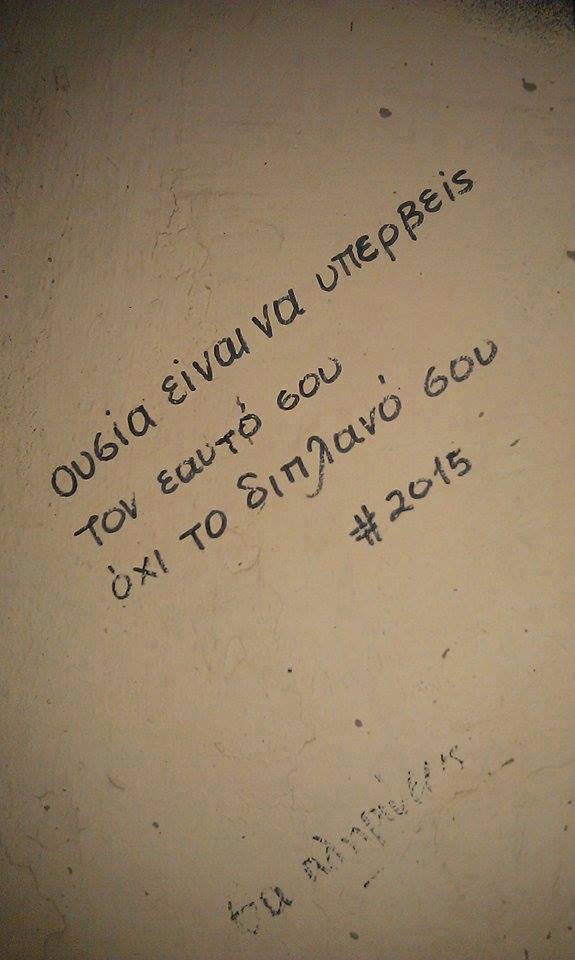 Ουσία είναι να υπερβείς
τον εαυτό σου
όχι το διπλανό σου
#2015
θα πληρώνεις